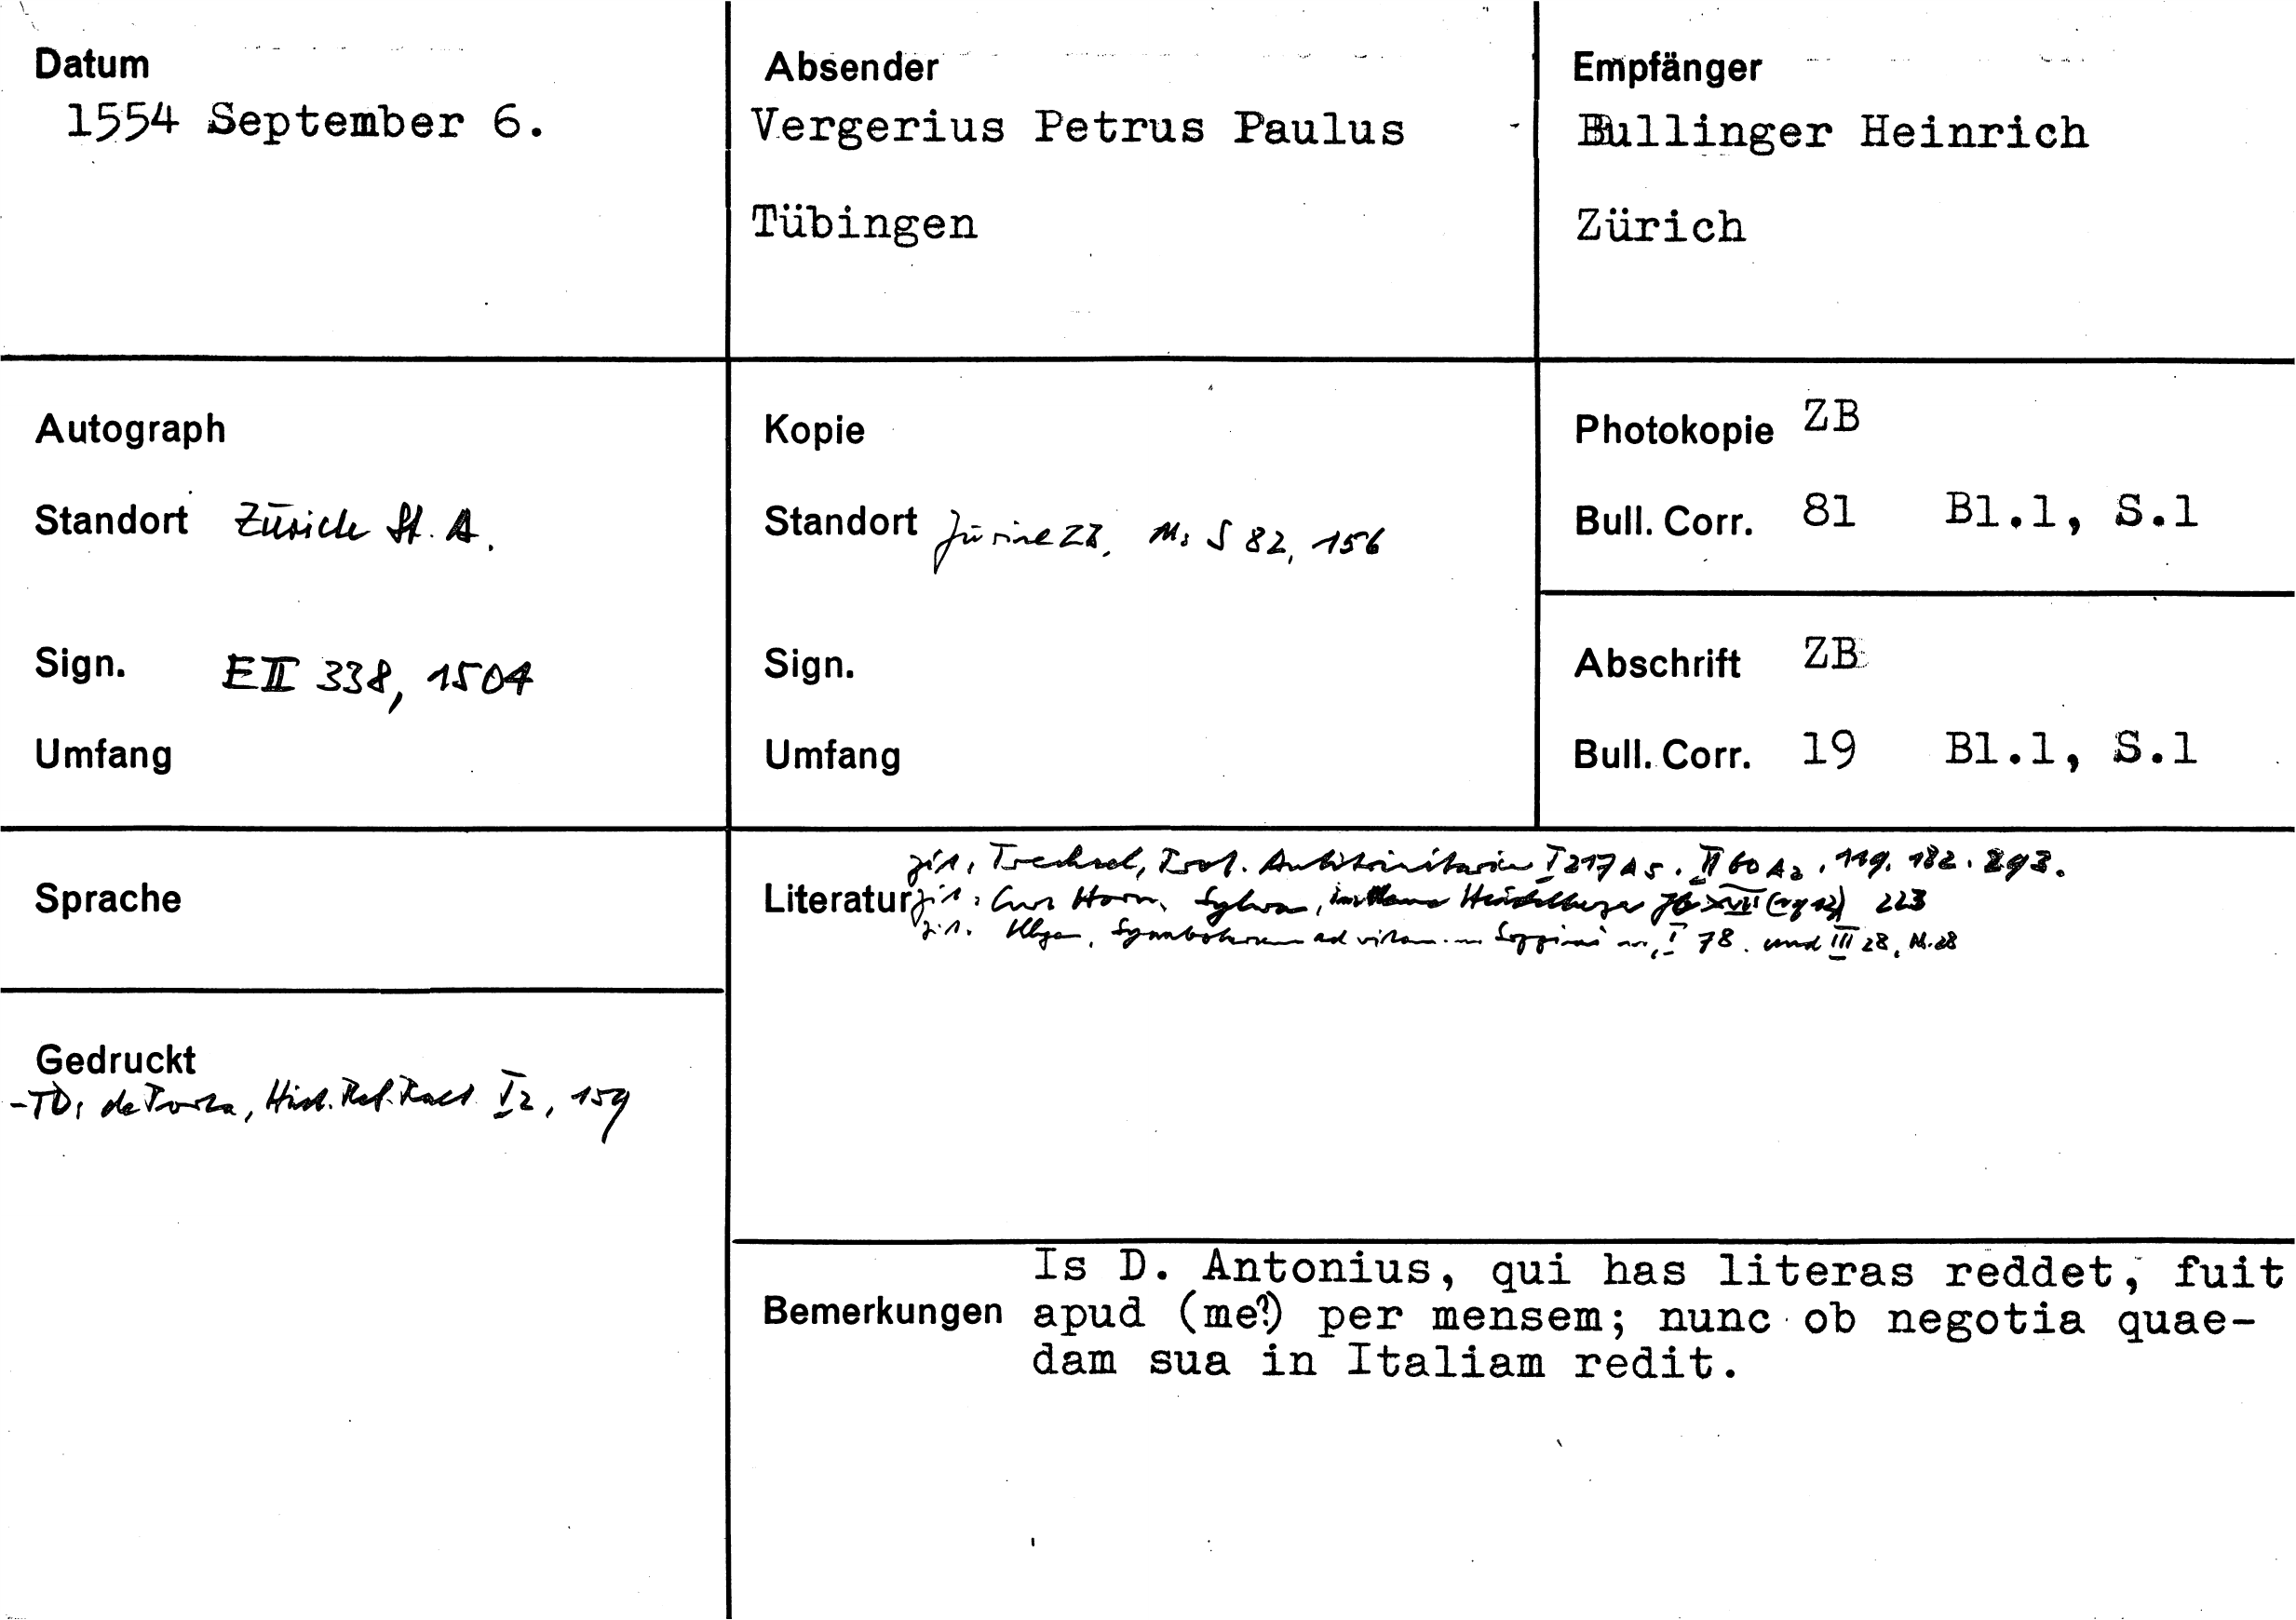 Datum
1554 September 6.
Absender
Vergerius Petrus Paulus
Tübingen
Empfänger
Bullinger Heinrich
Zürich
Autograph
Standort Zürich St. A.
Sign. E II 338, 1504
Umfang
Kopie
Standort Zürich ZB. Ms S 82, 156
Sign.
Umfang
Photokopie ZB
Bull. Corr. 81 Bl.1, S.1
Abschrift ZB
Bull. Corr. 19 Bl.1, S.1
Sprache
Gedruckt
-TD: de Porta, Hist. Ref. Raet I 2, 159
zit. Trechsel, Prot. Antitrinitarier I 217 A 5. II 60 A 2. 119. 182. 293.
Literatur zit. Curt Horn, Sylvan, in Heidelberger Jb XVII 223
zit. Symbolarum ad vitam I 78. und III 28, N. 28
Bemerkungen
Is D. Antonius, qui has literas reddet, fuit
apud (me?) per mensem; nunc ob negotia quae-
dam sua in Italiam redit.